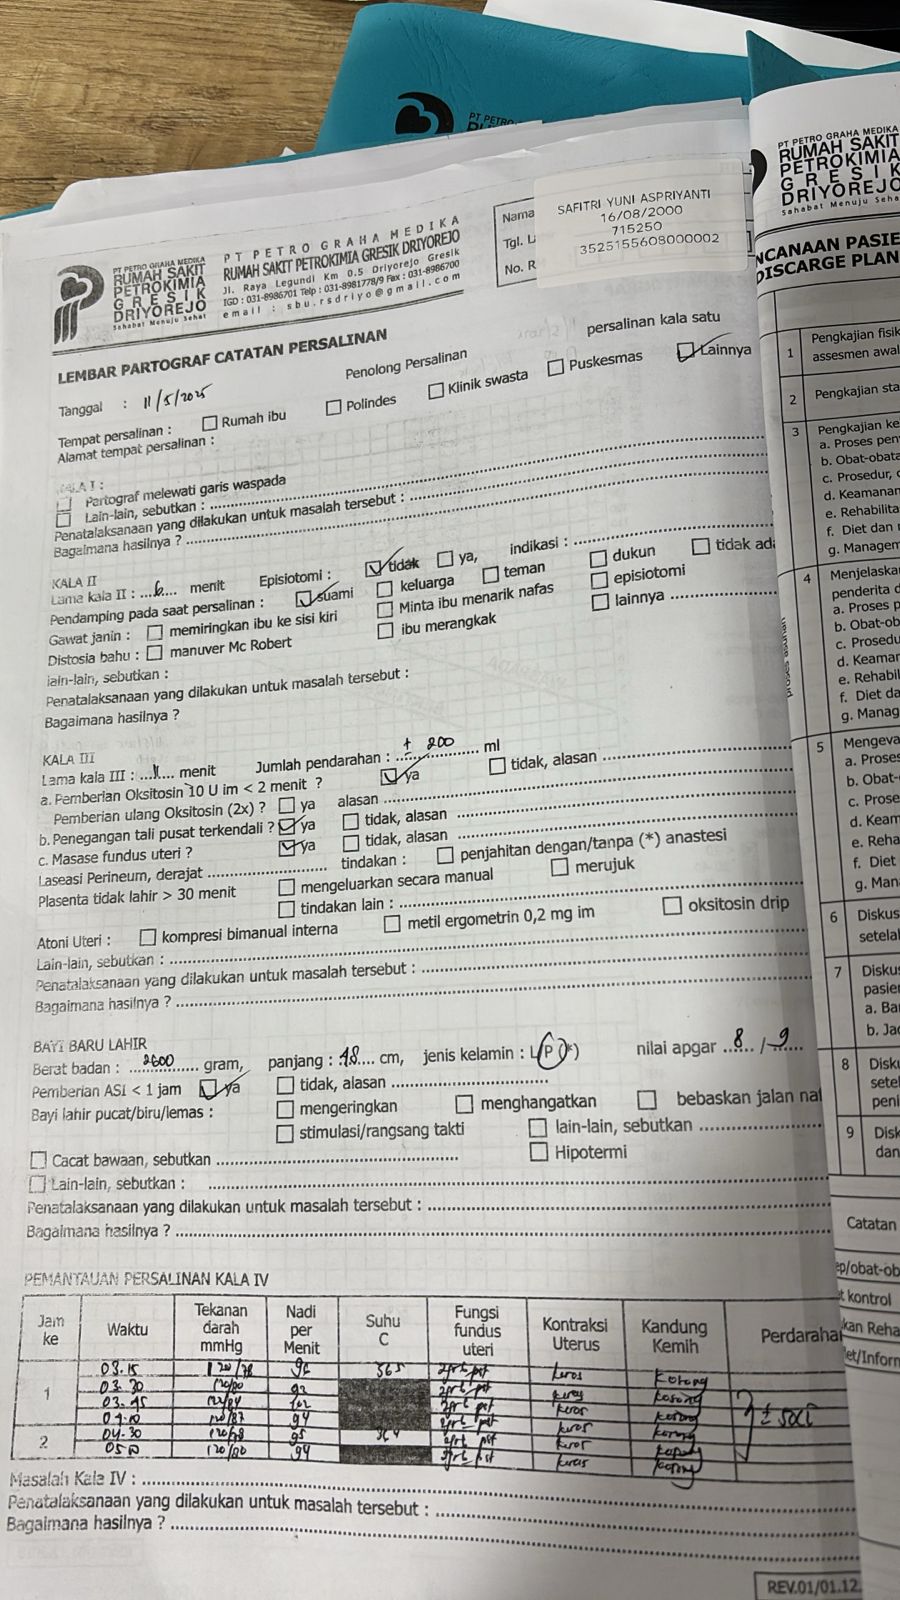 PT PETRO
PT PETRO GRAHA MEDIKA
RUMAH SAKIT
PETROKIMIA
GRESIK
DRIYOREJO
Sahabat Menuju Sehat
PT PETRO GRAHA MEDIKA
RUMAH SAKIT PETROKIMIA GRESIK DRIYOREJO
Jl. Raya Legundi Km 0.5 Driyorejo Gresik
IGD : 031-8986701 Telp : 031-8981778/9 Fax : 031-8986700
email : sbu.rsdriyo@gmail.com
Nama
Tgl. L
No. R
SAFITRI YUNI ASPRIYANTI
16/08/2000
715250
3525155608000002
LEMBAR PARTOGRAF CATATAN PERSALINAN
Tanggal : 11/5/2025
Penolong Persalinan
persalinan kala satu
Tempat persalinan : Rumah ibu Polindes Klinik swasta Puskesmas Lainnya
Alamat tempat persalinan :
KALA I :
Partograf melewati garis waspada
Lain-lain, sebutkan :
Penatalaksanaan yang dilakukan untuk masalah tersebut :
Bagaimana hasilnya ?
KALA II
Lama kala II : 6 menit Episiotomi : tidak ya, indikasi :
Pendamping pada saat persalinan : suami keluarga teman dukun tidak ada
Gawat janin : memiringkan ibu ke sisi kiri Minta ibu menarik nafas episiotomi
Distosia bahu : manuver Mc Robert ibu merangkak lainnya
lain-lain, sebutkan :
Penatalaksanaan yang dilakukan untuk masalah tersebut :
Bagaimana hasilnya ?
KALA III
Lama kala III : menit Jumlah pendarahan : ± 200 ml
a. Pemberian Oksitosin 10 U im < 2 menit ? ya tidak, alasan
Pemberian ulang Oksitosin (2x) ? ya alasan
b. Penegangan tali pusat terkendali ? ya tidak, alasan
c. Masase fundus uteri ? ya tidak, alasan
Laseasi Perineum, derajat tindakan : penjahitan dengan/tanpa (*) anastesi
Plasenta tidak lahir > 30 menit mengeluarkan secara manual merujuk
tindakan lain :
Atoni Uteri : kompresi bimanual interna metil ergometrin 0,2 mg im oksitosin drip
Lain-lain, sebutkan :
Penatalaksanaan yang dilakukan untuk masalah tersebut :
Bagaimana hasilnya ?
BAYI BARU LAHIR
Berat badan : 2600 gram, panjang : 48 cm, jenis kelamin : L/P (*) nilai apgar 8 / 9
Pemberian ASI < 1 jam ya tidak, alasan
Bayi lahir pucat/biru/lemas : mengeringkan menghangatkan bebaskan jalan naf
stimulasi/rangsang takti lain-lain, sebutkan
Cacat bawaan, sebutkan Hipotermi
Lain-lain, sebutkan :
Penatalaksanaan yang dilakukan untuk masalah tersebut :
Bagaimana hasilnya ?
PEMANTAUAN PERSALINAN KALA IV
Jam ke Waktu Tekanan darah mmHg Nadi per Menit Suhu C Fungsi fundus uteri Kontraksi Uterus Kandung Kemih Perdaraha
1 03.15 120/78 96 365 2jrt pst keras kosong
03.30 120/80 92 2jrt pst keras kosong
03.45 122/84 102 2jrt pst keras kosong
04.00 120/87 94 2jrt pst keras kosong ± 50cc
2 04.30 120/78 95 364 2jrt pst keras kosong
05.00 120/80 94 2jrt pst keras kosong
Masalah Kala IV :
Penatalaksanaan yang dilakukan untuk masalah tersebut :
Bagaimana hasilnya ?
REV.01/01.12.
PT PETRO GRAHA MEDIKA
RUMAH SAKIT
PETROKIMIA
GRESIK
DRIYOREJO
Sahabat Menuju Seha
NCANAAN PASIE
DISCARGE PLAN
1 Pengkajian fisik
assesmen awal
2 Pengkajian sta
3 Pengkajian ke
a. Proses pen
b. Obat-obata
c. Prosedur, c
d. Keamanan
e. Rehabilita
f. Diet dan
g. Managem
proses asuhan
4 Menjelaska
penderita d
a. Proses p
b. Obat-ob
c. Prosedu
d. Keamar
e. Rehabil
f. Diet da
g. Manag
5 Mengeva
a. Proses
b. Obat-
c. Prose
d. Keam
e. Reha
f. Diet
g. Man
6 Diskus
setelal
7 Diskus
pasier
a. Ba
b. Ja
8 Disku
sete
peni
9 Disk
dan
Catatan
ep/obat-ob
t kontrol
kan Reha
et/Inforn